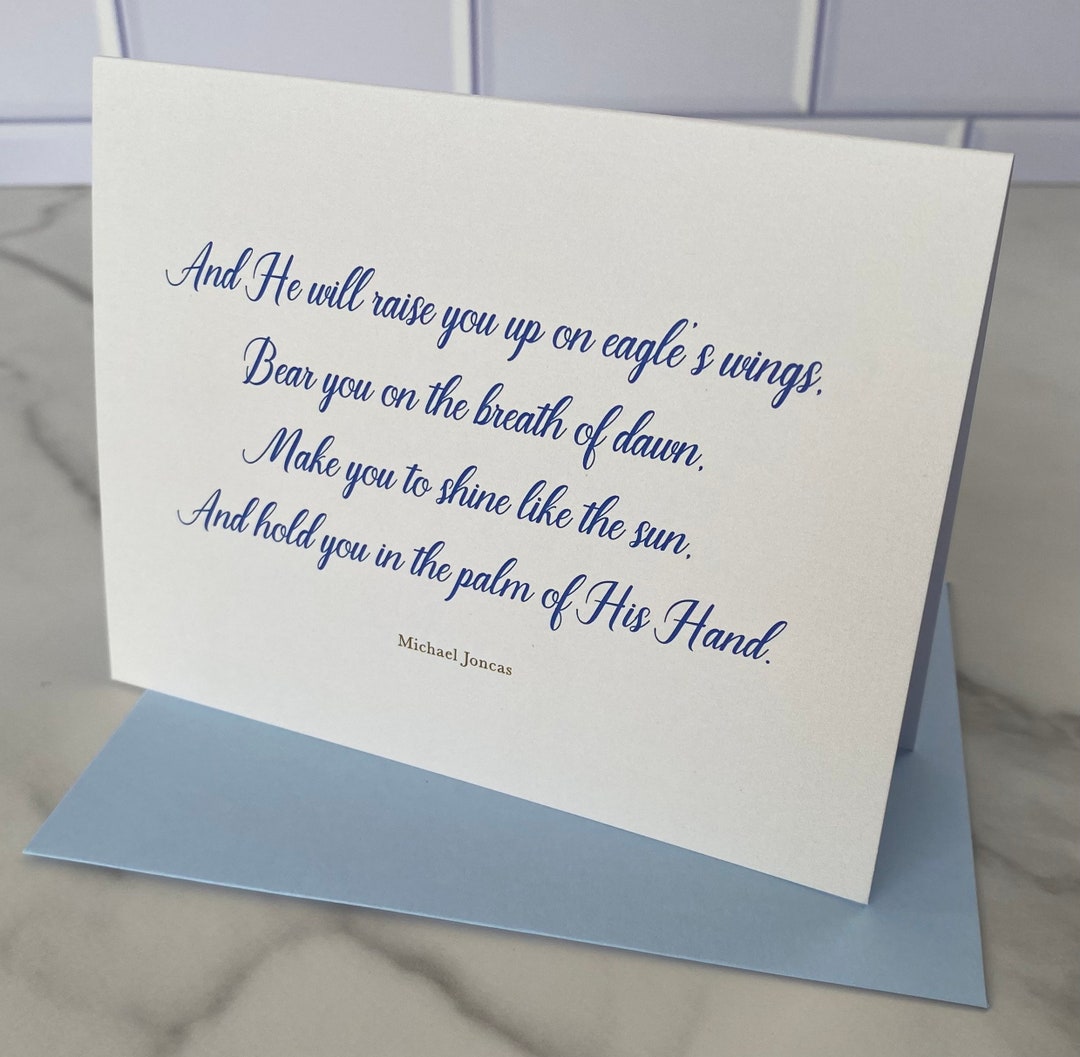 And He will raise you up on eagle's wings,
Bear you on the breath of dawn,
Make you to shine like the sun,
And hold you in the palm of His Hand.
Michael Joncas